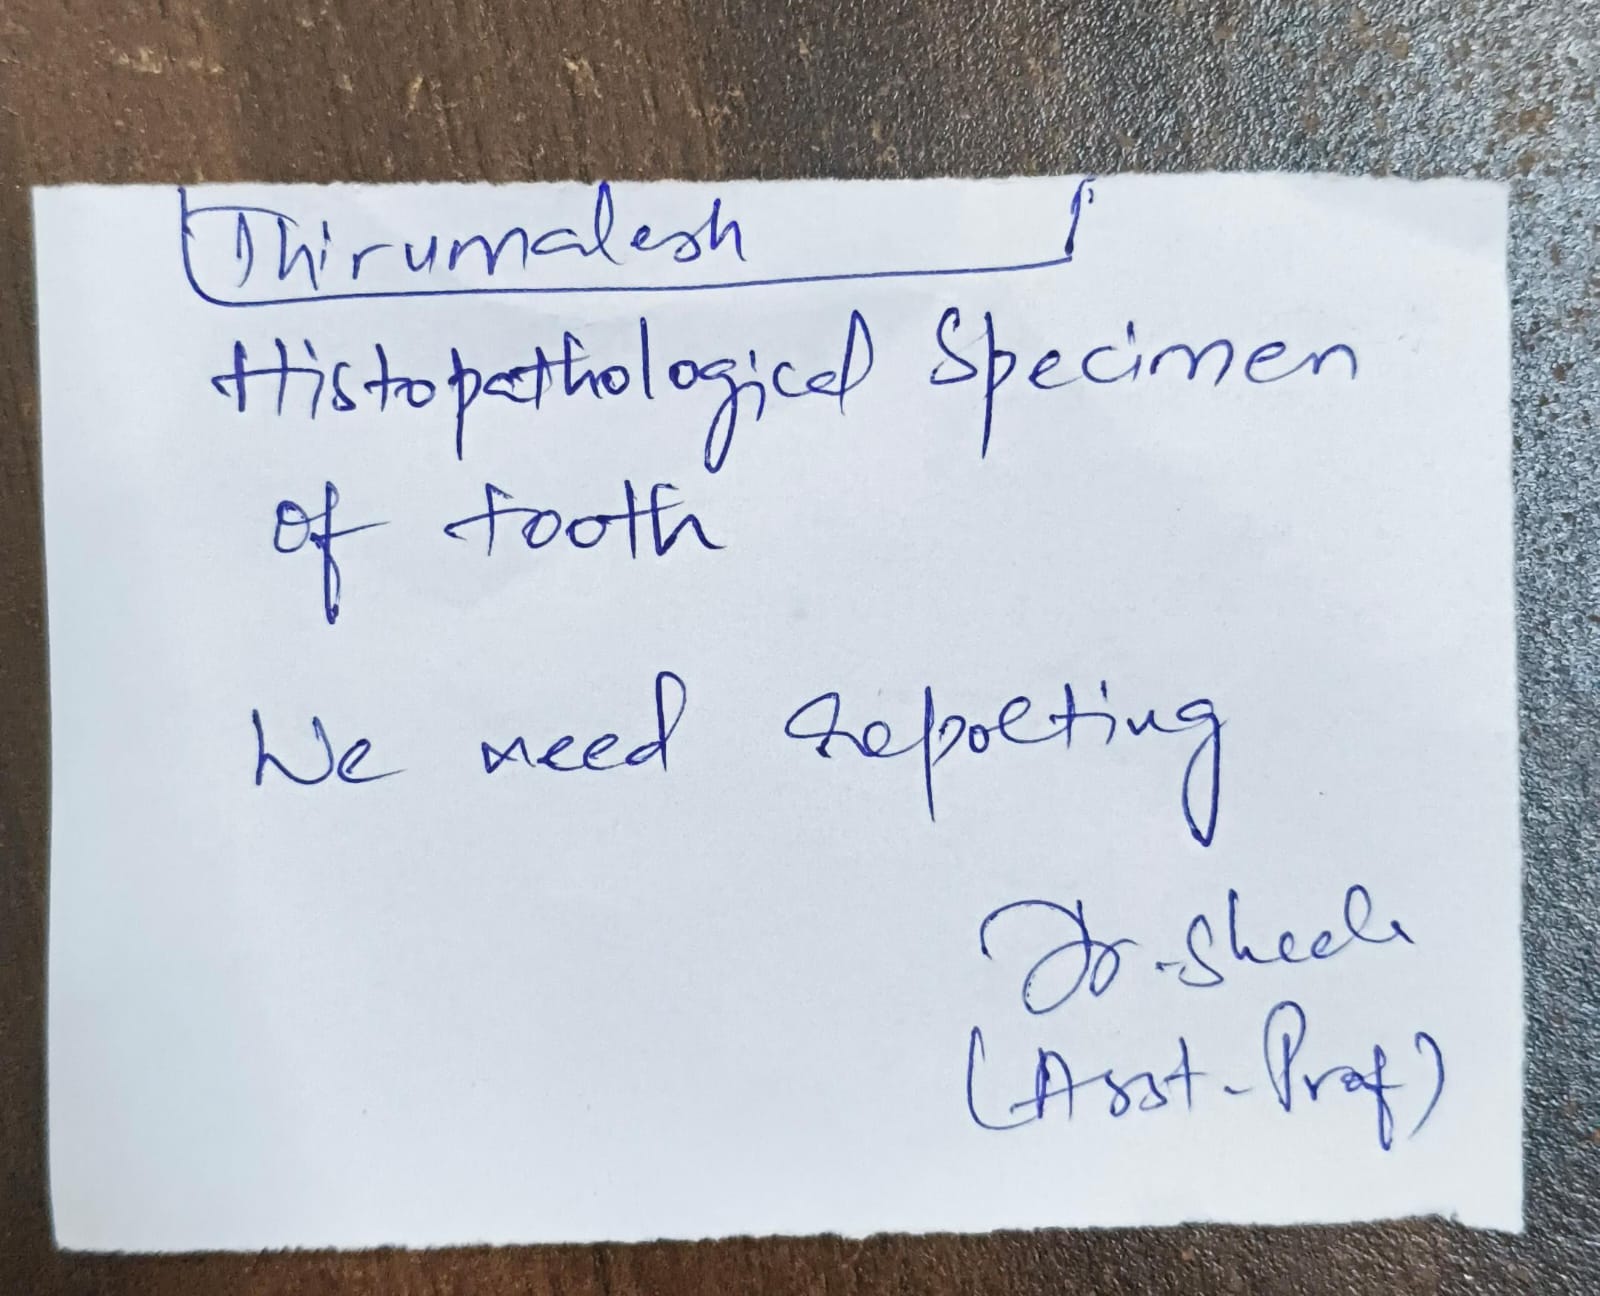 Thirumalesh
Histopathological Specimen
of tooth
We need reporting
Dr. Sheela
(Asst. Prof)